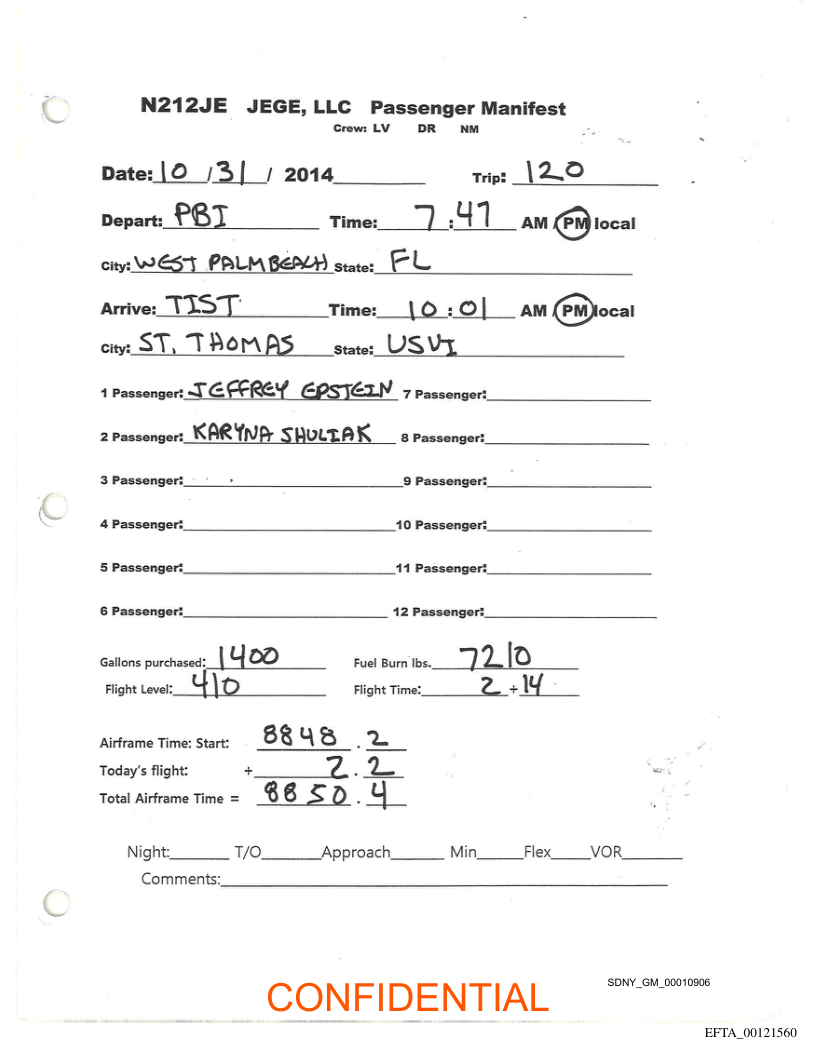 N212JE JEGE, LLC Passenger Manifest
Crew: LV DR NM
Date: 10 / 31 / 2014 Trip: 120
Depart: PBI Time: 7:47 AM PM local
City: WEST PALM BEACH State: FL
Arrive: TIST Time: 10:01 AM PM local
City: ST. THOMAS State: USVI
1 Passenger: JEFFREY EPSTEIN 7 Passenger:
2 Passenger: KARYNA SHULIAK 8 Passenger:
3 Passenger: 9 Passenger:
4 Passenger: 10 Passenger:
5 Passenger: 11 Passenger:
6 Passenger: 12 Passenger:
Gallons purchased: 1400 Fuel Burn lbs. 7210
Flight Level: 410 Flight Time: 2 + 14
Airframe Time: Start: 8848.2
Today's flight: + 2.2
Total Airframe Time = 8850.4
Night: T/O Approach Min Flex VOR
Comments:
SDNY_GM_00010906
CONFIDENTIAL
EFTA_00121560